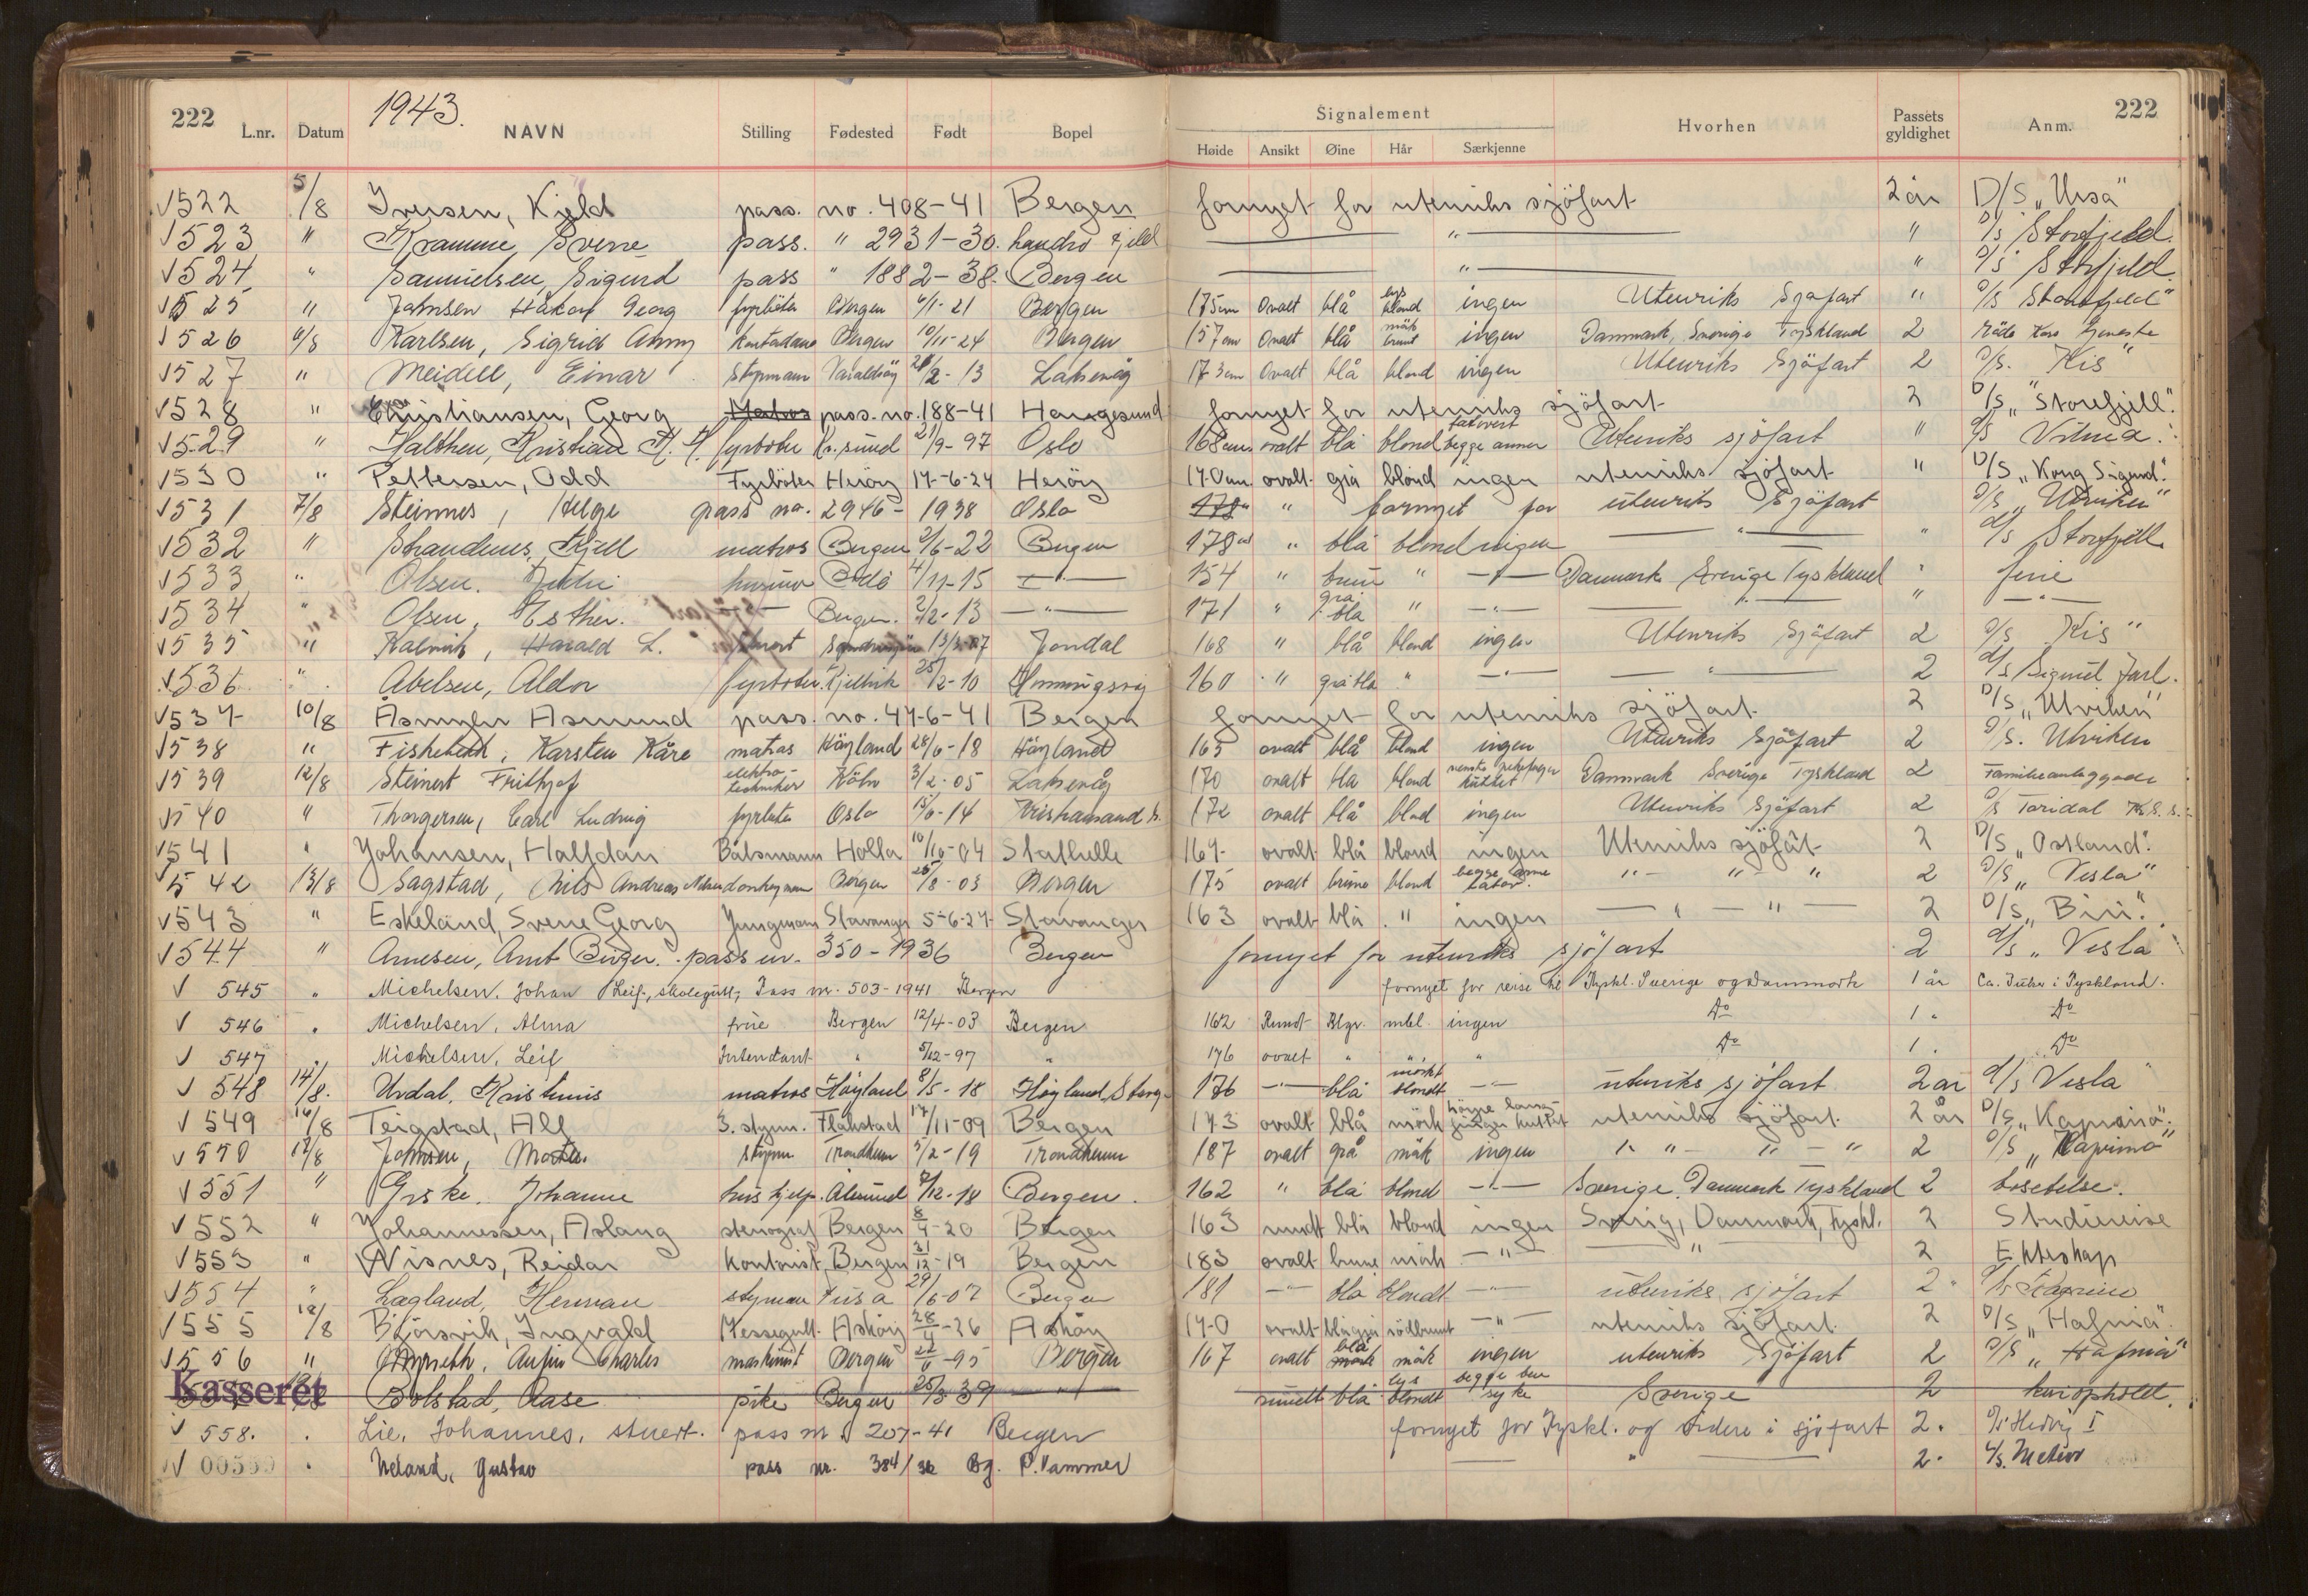 222 1943. 222
L.nr. Datum NAVN Stilling Fødested Født Bopel Signalement Hvorhen Passets gyldighet Anm.
Høide Ansikt Øine Hår Særkjenne
√522 5/8 Iversen, Kjeld pass. no. 408-41 Bergen fornyet for utenriks sjöfart 2 år D/S „Ursa"
√523 " Kramme, Sverre pass. " 2931-30. " " D/S Storfjeld.
√524 " Samuelsen, Sigurd pass " 1882-38. Bergen " " D/S Storfjeld
√525 " Jahnsen Håkon Georg fyrböter Bergen 6/1-21 Bergen 175cm Ovalt blå lys blond ingen Utenriks Sjøfart " D/S Storfjeld"
√526 6/8 Karlsen, Sigrid Anny Kontordame Bergen 10/11-24 Bergen 157cm Ovalt blå mörk brunt ingen Danmark, Sverige Tyskland 2
√527 " Meidell, Einar Styrmann Varaldsöy 28/2-13 Laksevåg 173cm Ovalt blå blond ingen Utenriks Sjöfart 2 D/S. Kis"
√528 " Christiansen, Georg Matros pass. no. 188-41 Haugesund fornyet for utenriks sjöfart 2 D/S „Storefjell".
√529 " Halthen, Kristian K. fyrböter Kr.sund 21/9-97 Oslo 168cm ovalt blå blond tatovert begge armer Utenriks sjöfart " D/S Vilma.
√530 " Pettersen, Odd Fyrböter Heröy 17-6-24 Heröy 170cm ovalt grå blond ingen utenriks sjöfart " D/S „Kong Sigurd".
√531 7/8 Steinnes, Helge pass no. 2946-1938 Oslo 178 " fornyet for utenriks Sjöfart D/S „Ulriken"
√532 " Strandenes, Kjell matros Bergen 2/6-22 Bergen 178 " blå blond ingen " " D/S Storfjell.
√533 " Olsen. husmor Bodö 4/11-15 " 154 " brun " " Danmark Sverige Tyskland " ferie
√534 " Olsen, Esther. Bergen. 2/2-13 " 171 " grå blå " " " " "
√535 " Kalvik, Harald L. Stuert 13/3-07 Jondal 168 " blå blond ingen Utenriks Sjöfart 2 D/S Kis"
√536 " Abelsen, Aldor fyrböter. Kjelvik 25/2-10 Honningsvåg 160 " grå blå " " " 2 D/S Sigurd Jarl.
√537 10/8 Åsmund pass. no. 47-6-41 Bergen fornyet for utenriks sjöfart 2 D/S „Ulriken"
√538 " Fiskebekk, Karsten Kåre matros Höyland 28/6-18 Höyland 165 ovalt blå blond ingen Utenriks Sjöfart 2 D/S. Ulriken
√539 12/8 Steinert Frithjof elektro-tekniker Köln 3/2-05 Laksevåg 170 ovalt blå blond venstre pekefinger kuttet Danmark Sverige Tyskland 2
√540 " Thorgersen, Carl Ludvig fyrböter Oslo 15/6-14 Kristiansand S. 172 ovalt blå blond ingen Utenriks Sjöfart 2 D/S Toridal K.S.S.
√541 " Johansen, Halfdan Båtsmann Holla 10/10-04 Stathelle 167 ovalt blå blond ingen Utenriks sjöfart 2 D/S „Ostland".
√542 13/8 Sagstad, Nils Andreas Nilsen donkeymann Bergen 28/8-03 Bergen 175 ovalt brune blond begge arme tator. " " " 2 D/S „Vesla"
√543 " Eskeland, Sverre Georg Jungmann Stavanger 5-6-27 Stavanger 163 ovalt blå " ingen " " 2 D/S „Biri".
√544 " Arnesen, Arnt Birger. pass nr. 350-1936 Bergen fornyet for utenriks sjöfart 2 D/S „Vesla
√ 545 " Michelsen, Johan Leif, skolegutt, Pass nr. 503-1941 Bergen fornyet for reise til Tyskl. Sverige og Danmark 1 år Ca. Juker i Tyskland.
√ 546 " Michelsen, Alma frue Bergen 12/4-03 Bergen 162 Rundt Blgr. mbl. ingen Do 1 " Do
√ 547 " Michelsen, Leif Intendant " 5/12-97 " 176 ovalt " " " Do 1 " Do
√ 548 14/8. Urdal, Kristinus matros Höyland 8/5-18 Höyland, Stavg. 176 " blå mörkt blondt " utenriks sjöfart 2 år D/S Vesla"
√ 549 16/8 Teigstad, Alf 3. styrm. Flakstad 17/11-09 Bergen 173 ovalt blå mörk höyre lang-finger kuttet utenriks sjöfart. 2 år D/S „Kaprino".
√ 550 17/8 Johnsen, Morten Styrm Trondheim 5/2-19 Trondheim 187 ovalt grå mörk ingen " " " " 2 D/S „Kaprino"
√ 551 " Giske. Johanne hushjelp. Ålesund 9/12-18 Bergen. 162 " blå blond " Sverige. Danmark Tyskland 2 besettelse.
√ 552 " Johannessen, Aslaug stenograf Bergen 8/4-20 Bergen 163 rundt blå blond ingen Sverig, Danmark, Tyskl. 2 Studiereise
√553 " Nisnes, Reidar kontorist Bergen 31/12-19 Bergen 183 ovalt brune mörk " " 2 Ekteskap
√554 " Lægland, Herman styrman Fusa 29/6-07 Bergen 181 " blå blondt " utenriks sjöfart 2 " D/S Kaprino
√555 18/8 Björsvik, Ingvald Messegutt. Asköy 28/4-26 Asköy 170 ovalt blågrå rödbrunt " utenriks sjöfart. 2 D/S „Hafnia".
√556 " Myrseth, Anfin Charles maskinist Bergen 22/6-95 Bergen 167 ovalt blå mörk mörk ingen utenriks Sjöfart 2 D/S „Hafnia"
Kasseret Bolstad, Aase pike Bergen 25/3 39 " smalt blå lys blondt begge ben syke Sverige 2
√ 558. " Lie, Johannes, stuert. pass nr. 207-41 Bergen fornyet for Tyskl. og videre i sjöfart 2. D/S Hedvig I
√ 00559 " Neland, Gustav pass nr. 384/36 Bg. P. Vammer " 2.